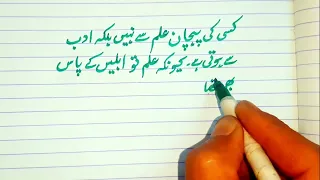 کسی کی پہچان علم سے نہیں بلکہ ادب
سے ہوتی ہے۔ کیونکہ علم تو ابلیس کے پاس
بھی تھا